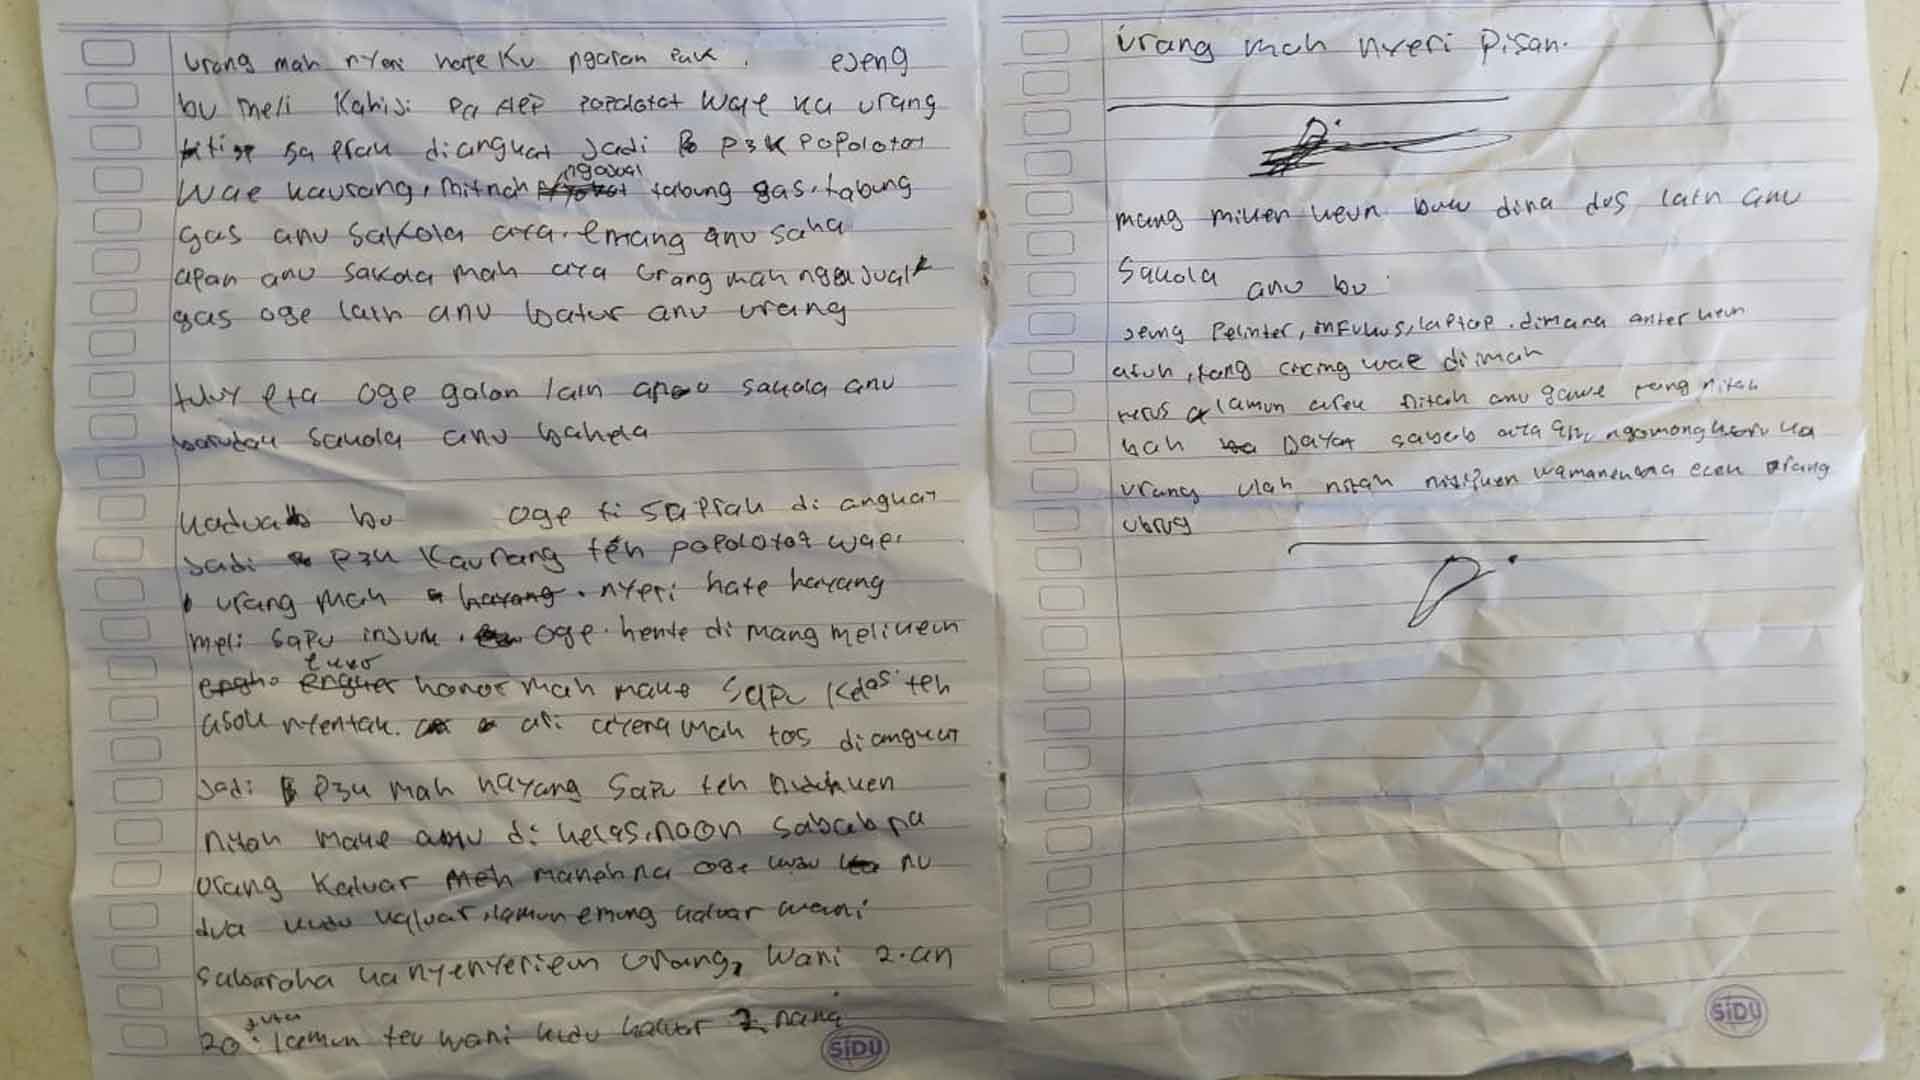 urang mah nyeri hate Ku ngaran pak. ejeng
bu meli Kahiji pa dep popolotot wae ka urang
ti saprak diangkat Jadi P3K popolotot
wae kaurang, mitnah ngajual tabung gas. tabung
gas anu sakola aya. emang anu saha
apan anu sakola mah aya urang mah ngajual
gas oge lain anu batur anu urang
tuluy eta oge galon lain anu sakola anu
barudak sakola anu bahela
kadua bu oge ti saprak di angkat
Jadi P3K Kaurang teh popolotot wae.
urang mah hayang. nyeri hate hayang
meli sapu injuk. oge. hente di mang melikeun
euro
honor mah make sapu kelas teh
asok nyentak. ari ayena mah tos diangkat
Jadi P3K mah hayang sapu teh
nitah make anu di kelas. naon sabab pa
urang Kaluar meh manehna oge kudu nu
dua kudu kaluar, lamun embung kaluar wani
sabaraha ka nyenyerieun urang, wani 2.an
20 juta lamun teu wani kudu kaluar 2 nana
SiDU
urang mah nyeri pisan.
mang mikeun keun buku dina dus lain anu
Sakola anu bu
jeung Pelinter, infukus, laptop. dimana anterkeun
atuh, tong cicing wae di imah
terus lamun arek nitah anu gawe tong nitah
bah Dayat sabab aya ngomong ka
urang ulah nitah wamanehna urang
ubrug
SiDU